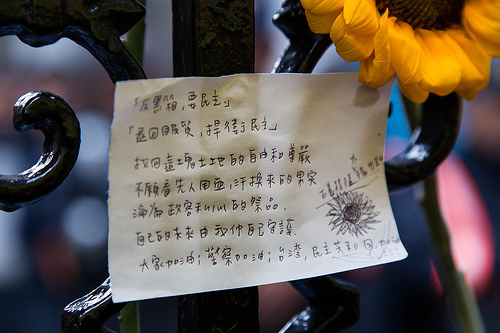 「反黑箱,要民主」
「退回服貿,捍衛民主」
找回這塊土地的自由和尊嚴
不願看先人用血,汗換來的果實
淪為政客利的祭品
自己的未來由我們自己守護
大家加油;警察加油;台灣,民主共和國加油